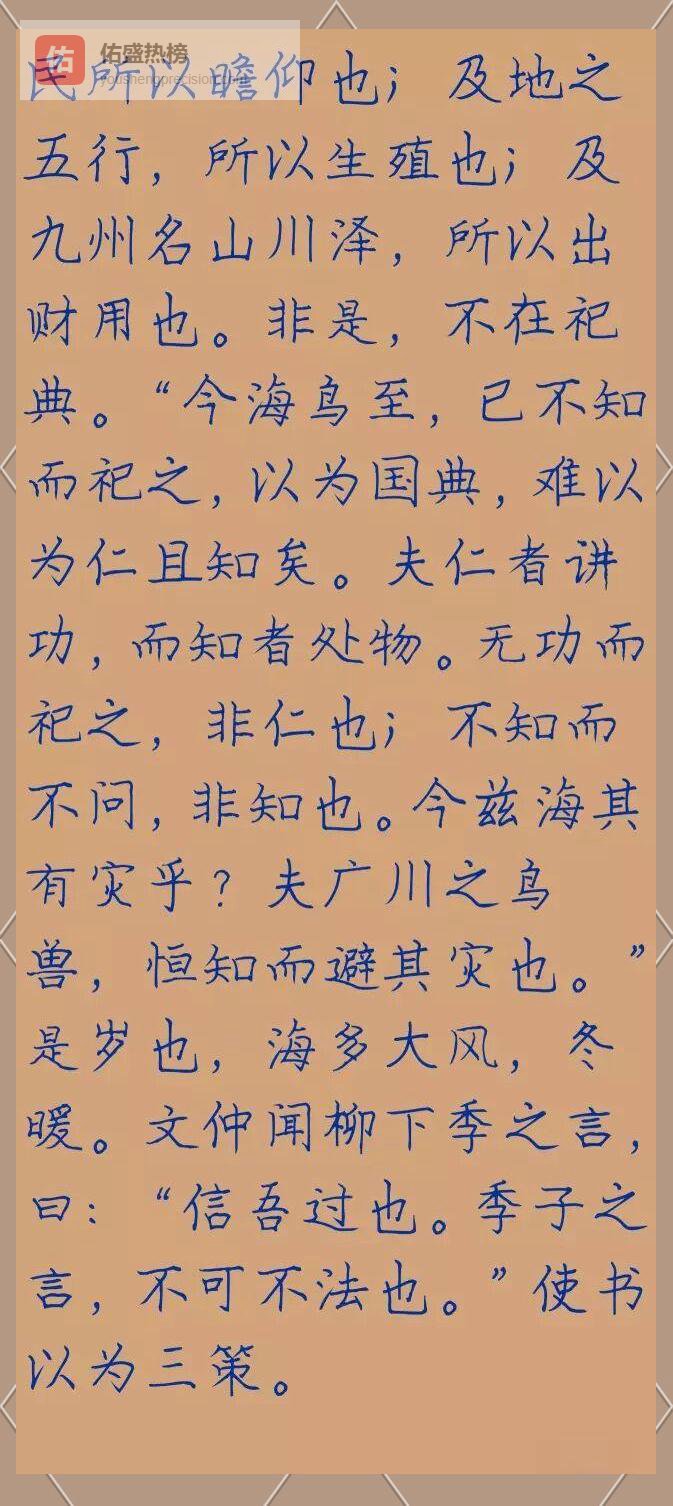 佑
佑盛热榜
youshengprecision.com
民所以瞻仰也；及地之
五行，所以生殖也；及
九州名山川泽，所以出
财用也。非是，不在祀
典。“今海鸟至，已不知
而祀之，以为国典，难以
为仁且知矣。夫仁者讲
功，而知者处物。无功而
祀之，非仁也；不知而
不问，非知也。今兹海其
有灾乎？夫广川之鸟
兽，恒知而避其灾也。”
是岁也，海多大风，冬
暖。文仲闻柳下季之言，
曰：“信吾过也。季子之
言，不可不法也。”使书
以为三策。